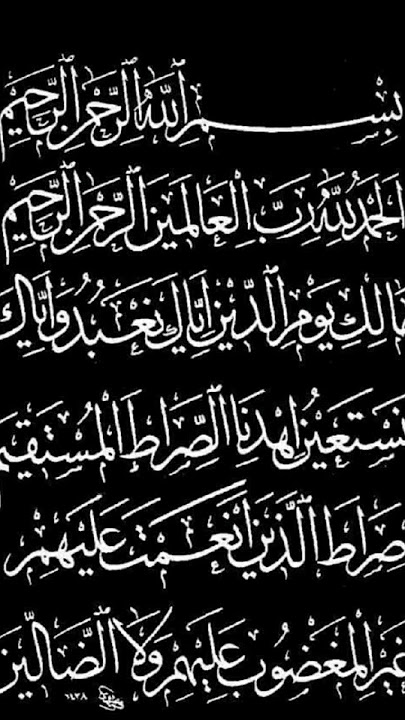 بِسْمِ ٱللَّهِ ٱلرَّحْمَٰنِ ٱلرَّحِيمِ
ٱلْحَمْدُ لِلَّهِ رَبِّ ٱلْعَالَمِينَ ٱلرَّحْمَٰنِ ٱلرَّحِيمِ
مَالِكِ يَوْمِ ٱلدِّينِ إِيَّاكَ نَعْبُدُ وَإِيَّاكَ
نَسْتَعِينُ ٱهْدِنَا ٱلصِّرَاطَ ٱلْمُسْتَقِيمَ
صِرَاطَ ٱلَّذِينَ أَنْعَمْتَ عَلَيْهِمْ
غَيْرِ ٱلْمَغْضُوبِ عَلَيْهِمْ وَلَا ٱلضَّالِّينَ
١٤٣٨